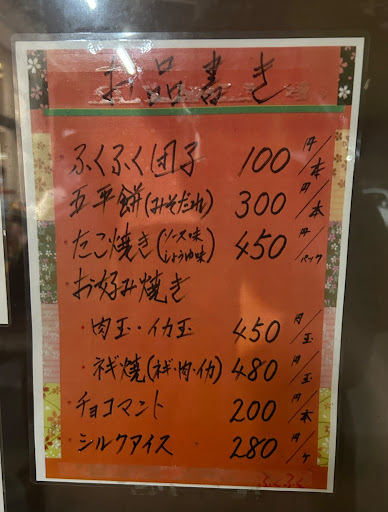 お品書き
・ふくふく団子 100円/本
・五平餅(みそだれ) 300円/本
・たこ焼き(ソース味 しょうゆ味) 450円/パック
・お好み焼き
・肉玉・イカ玉 450円/玉
・ネギ焼(ネギ・肉・イカ) 480円/玉
・チョコマント 200円/本
・シルクアイス 280円/ケ
ふくふく